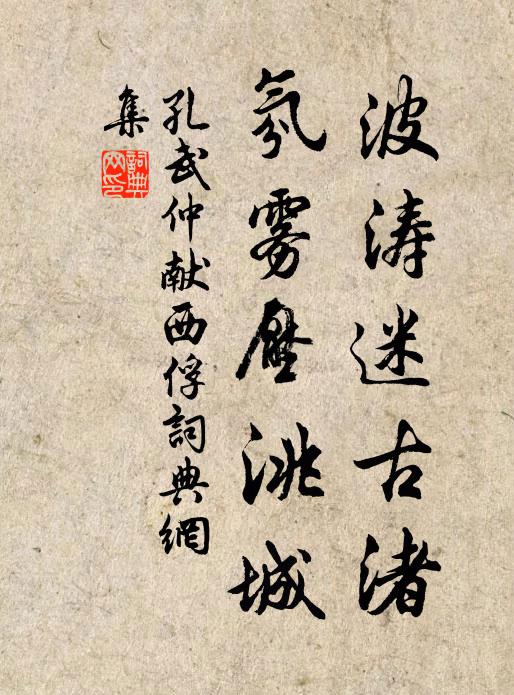 波涛迷古渚
氛雾压洮城
孔武仲献西俘詞典網
集
詞典
网印